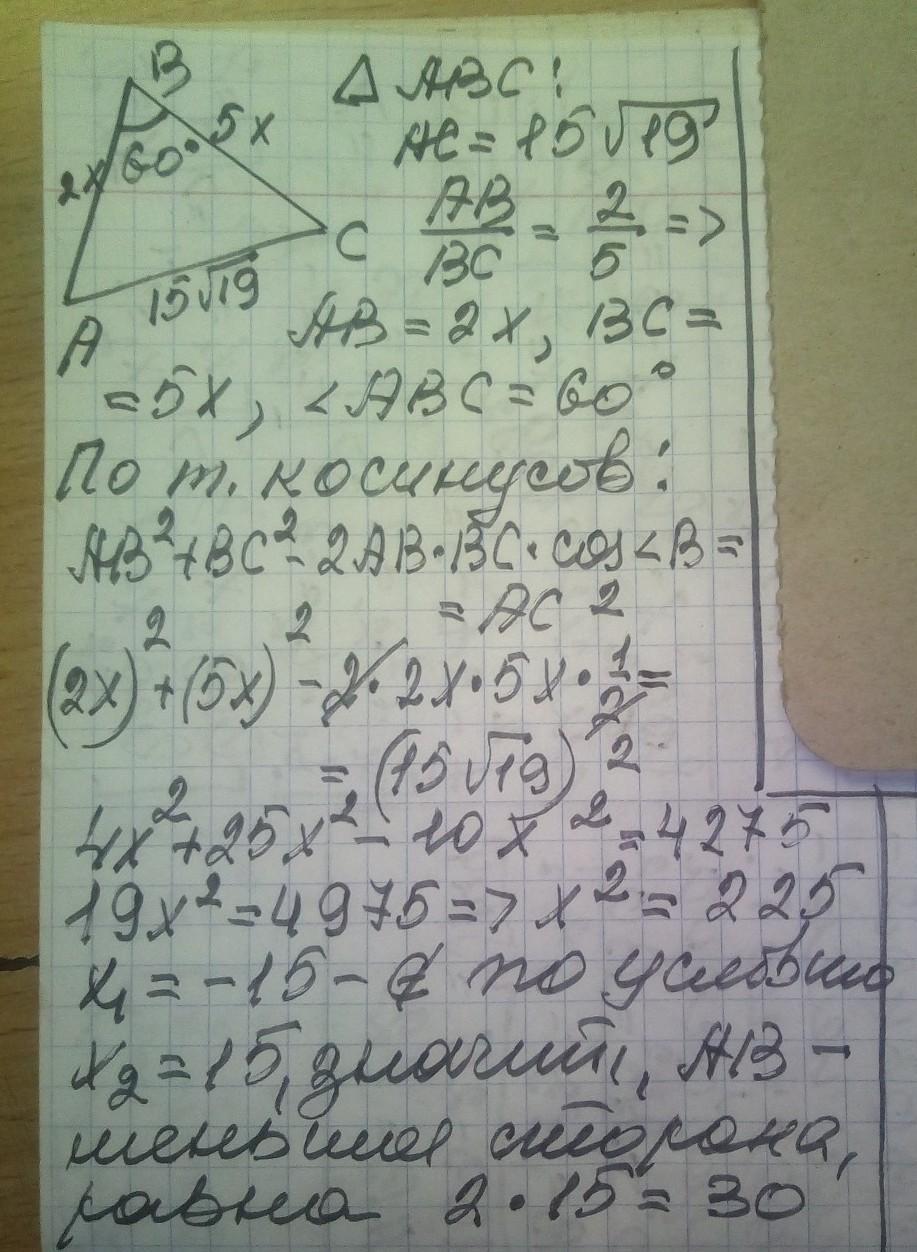 B
5x
2x
60°
C
15√19
A
△ ABC:
AC = 15√19
AB/BC = 2/5 =>
AB = 2x, BC =
= 5x, <ABC = 60°
По т. косинусов:
AB² + BC² - 2AB·BC·cos<B =
= AC²
(2x)² + (5x)² - 2·2x·5x·1/2 =
= (15√19)²
4x² + 25x² - 10x² = 4275
19x² = 4975 => x² = 225
x₁ = -15 - ∉ по условию
x₂ = 15, значит, AB -
меньшая сторона,
равна 2·15 = 30